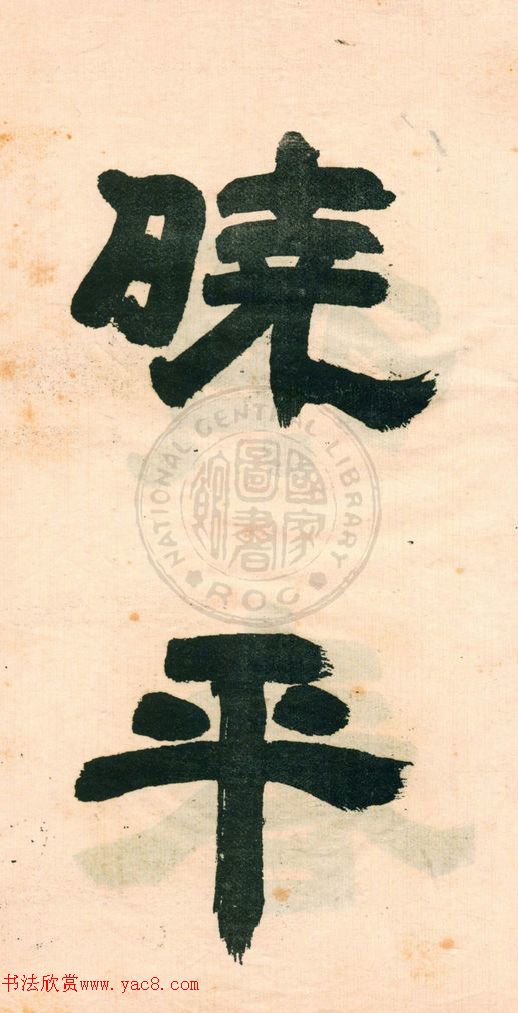 曉
平
NATIONAL CENTRAL LIBRARY
國家
圖書
ROC
书法欣赏www.yac8.com